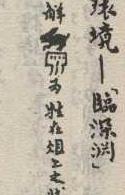 環境—「臨深渊」
解 为牲在俎上之